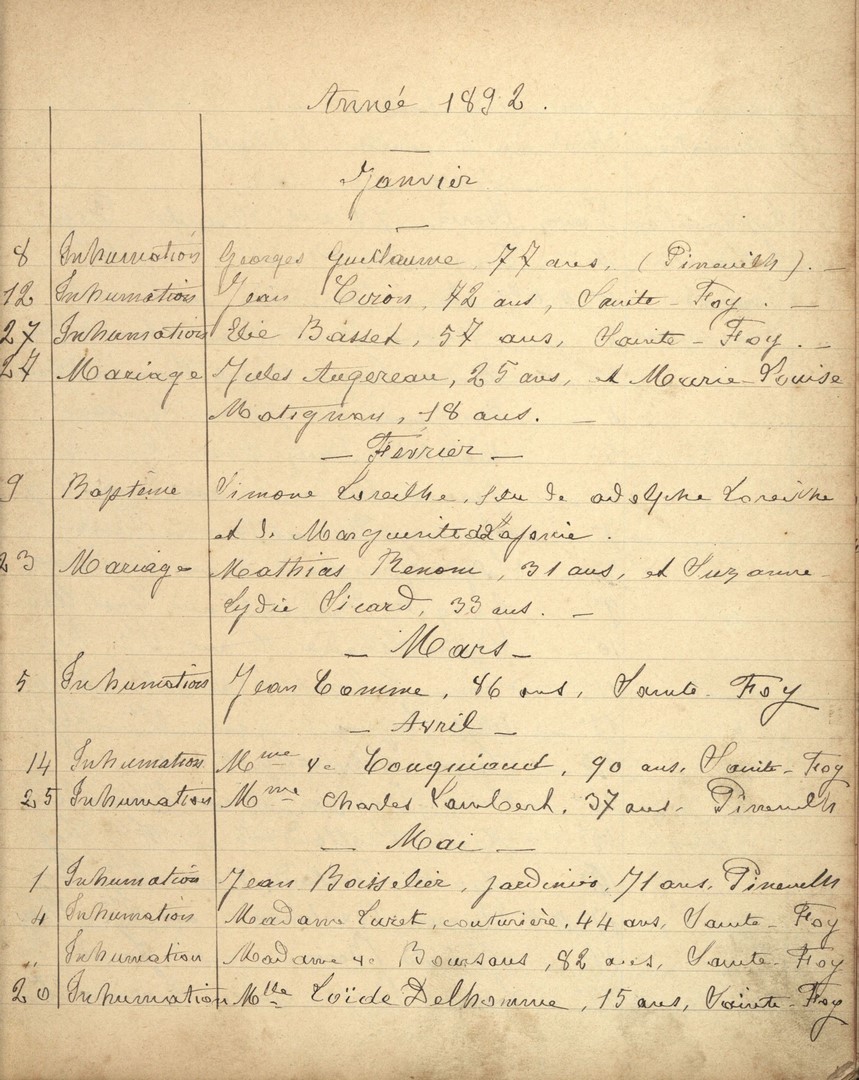 Année 1892.
Janvier
8 Inhumation Georges Guillaume, 77 ans, (Pineuilh). —
12 Inhumation Jean 72 ans, Sainte-Foy. —
27 Inhumation Elie Basset, 57 ans, Sainte-Foy. —
27 Mariage Jules Augereau, 25 ans, et Marie-Louise
Matignon, 18 ans. —
— Février —
9 Baptême Simone Loreilhe, de adolphe Loreilhe
et de Marguerite
23 Mariage Mathias Renom, 31 ans, et Suzanne-
Lydie Sicard, 33 ans. —
— Mars —
5 Inhumation Jean Comme, 86 ans, Sainte-Foy
— Avril —
14 Inhumation Mme Ve 90 ans, Sainte-Foy
25 Inhumation Mme Charles Lambert, 37 ans, Pineuilh
— Mai —
1 Inhumation Jean Boisselier, jardinier, 71 ans, Pineuilh
4 Inhumation Madame Luzet, couturière, 44 ans, Sainte-Foy
„ Inhumation Madame Ve Boursaus, 82 ans, Sainte-Foy
20 Inhumation Mlle Loïde Delhomme, 15 ans, Sainte-Foy